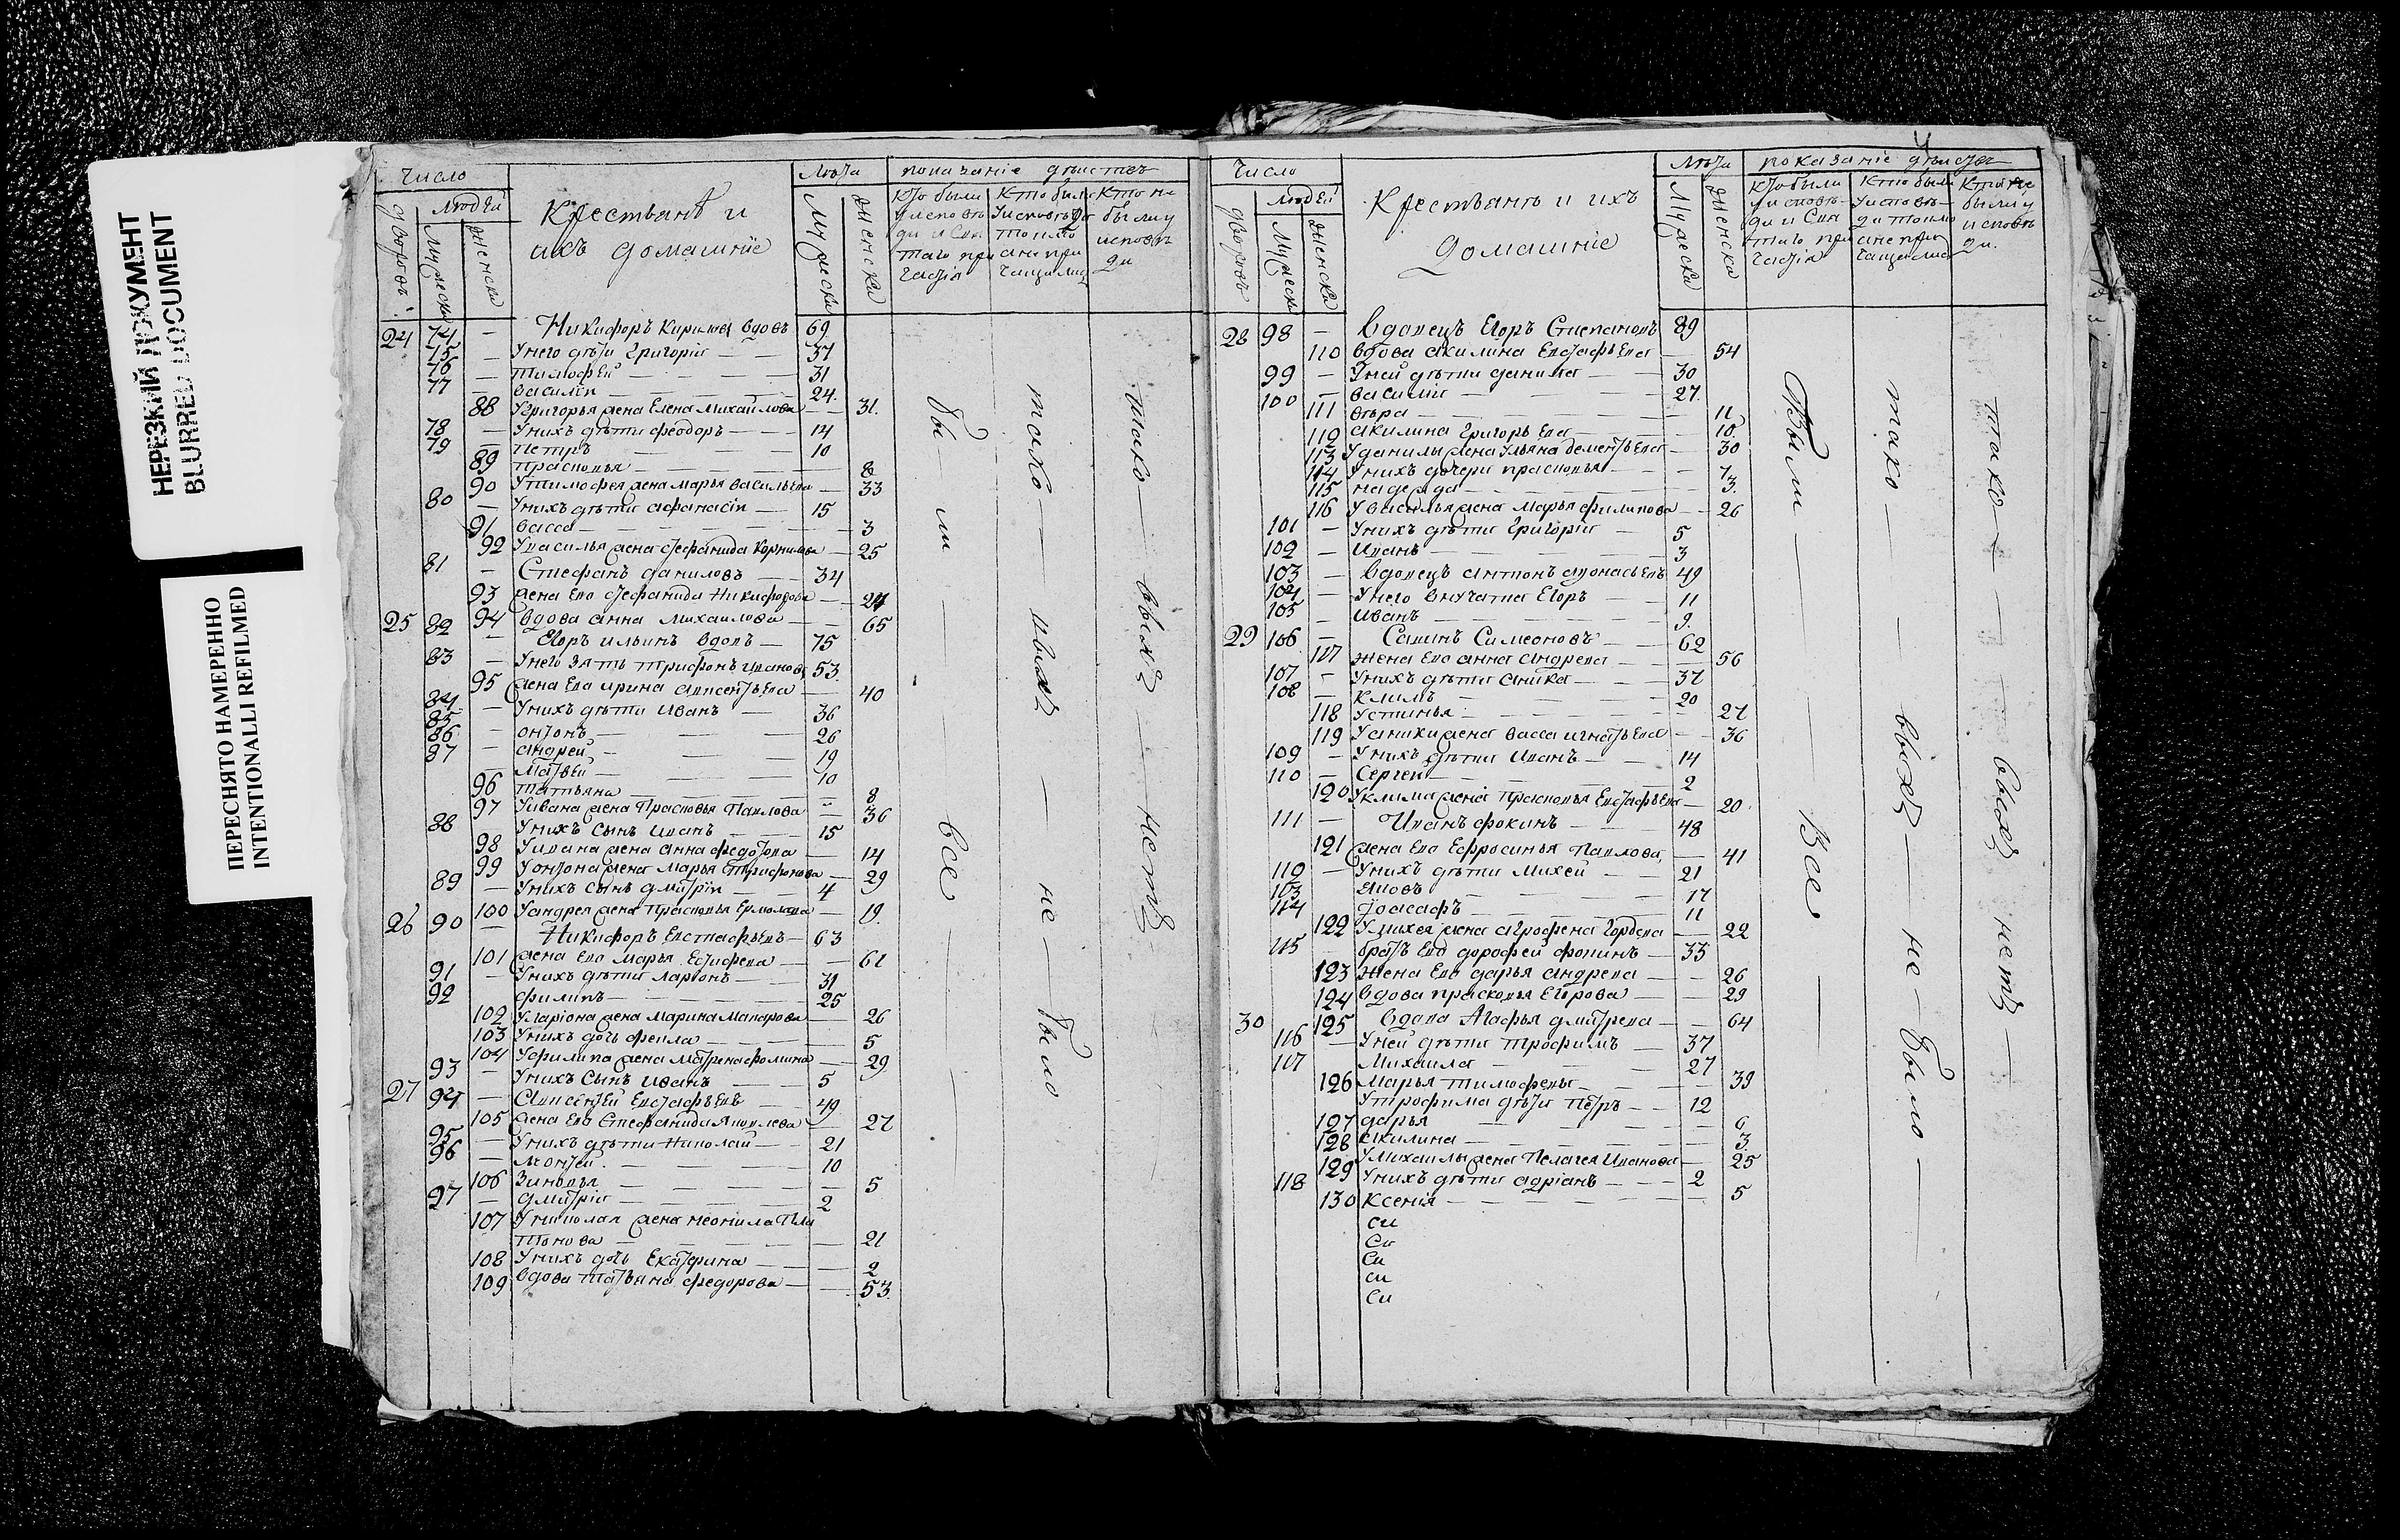 НЕРЕЗКИЙ ДОКУМЕНТ
BLURRED DOCUMENT
ПЕРЕСНЯТО НАМЕРЕННО
INTENTIONALLI REFILMED
Число Крестьянѣ и ихъ домашніе Лѣта показаніе дѣйствъ
Людей
дворовъ Мужеска женска Мужеска женска
Кто были у исповѣди и Святаго причастія
Кто были у исповѣди токмо а не причащались
Кто не были у исповѣди
24 74 — Никифоръ Кириловъ вдовъ 69
75 — Унего дѣти Григорій — — 37
76 — Тимофей — — — 31
77 — Василій — — 24
88 У Григорья жена Елена Михайлова — — 31.
78 — Унихъ дѣти Феодоръ — — 14
79 — Петръ — — 10
89 Прасковья — — — 8
90 У Тимофея жена Марья Васильева — 33
80 — Унихъ дѣти Афанасій — 15
91 Васса — — — 3
92 У Василья жена Стефанида Корнилова — 25
81 — Стефанъ Даниловъ — — 34
93 жена Его Стефанида Никифорова — 24
94 Вдова Анна Михаилова — — 65
25 82 — Егоръ Ильинъ вдовъ — 75
83 — Унего зять Трифонъ Ивановъ 53.
95 жена Его Ирина Авксентьева — 40
84 — Унихъ дѣти Иванъ — 36
85 — Антонъ — — 26
86 — Андрей — — 19
87 — Матвей — — 10
96 Татьяна — — — 8
97 У Ивана жена Прасковья Павлова — 36
88 Унихъ Сынъ Иванъ — — 15
98 У Ивана жена Анна Федотова — 14
99 У Онтона жена Марья Трифонова — 29
89 — Унихъ сынъ Дмитрій — 4
100 У Андрея жена Прасковья Ермолаева — 19.
26 90 — Никифоръ Евстафьевъ — 63
101 жена Его Марья Естафева — — 61
91 — Унихъ дѣти Ларіонъ — — 31
92 Филипъ — — — 25
102 У Ларіона жена Марина Макарова — 26
103 Унихъ дочь Фекла — — — 5
104 У Филипа жена Матрена Фомина — 29
93 — Унихъ Сынъ Иванъ — — 5
27 94 — Авксентей Евстафьевъ — 49
105 жена Его Стефанида Яковлева — 27
95 — Унихъ дѣти Николай — — 21
96 — Монсей — — — 10
106 Зиновья — — — 5
97 — Дмитрій — — 2
107 У Николая жена Неонила Пла
тонова — — — 21
108 Унихъ дочь Екатерина — — 2
109 Вдова Татьяна Федорова — — 53.
Были — Все
тако — выхъ — не — было
тако — выхъ — нетъ
4
Число Крестьянъ и ихъ домашніе Лѣта показаніе дѣйствъ
Людей
дворовъ Мужеска женска Мужеска женска
Кто были у исповѣди и Святаго причастія
Кто были у исповѣди токмо а не причащались
Кто не были у исповѣди.
28 98 — Вдовецъ Егоръ Степановъ 89
110 Вдова Акилина Евстафьева — 54
99 — Уней дѣти Данила — — 30
100 — Василій — — 27.
111 Вѣра — — — 11
112 Акилина Григорьева — — 18.
113 У Данилы жена Ульяна Дементьева — 30
114 Унихъ дочери Прасковья — — 7.
115 Надежда — — — 3.
116 У Василья жена Марья Филипова — 26
101 — Унихъ дѣти Григорій — 5
102 — Иванъ — — 3
103 — Вдовецъ Антонъ Афонасьевъ 49
104 — Унего внучата Егоръ — 11
105 — Иванъ — — 9.
29 106 — Савинъ Симеоновъ — 62
117 жена Его Анна Андреева — — 56
107 — Унихъ дѣти Аника — — 37
108 — Климъ — — 20
118 Устинья — — — 27
119 У Аники жена Васса Игнатьева — 36
109 — Унихъ дѣти Иванъ — — 14
110 — Сергей — — 2
120 У Клима жена Прасковья Евстафьева — 20
111 — Иванъ Фокинъ — — 48
121 жена Его Ефросинья Павлова, — 41
112 — Унихъ дѣти Михей — 21
113 Яковъ — — 17
114 Іоасафъ — — 11
122 У Михея жена Агрофена Гордеева — 22
115 братъ Его Дорофей Фокинъ — 33
123 Жена Его Дарья Андреева — — 26
124 Вдова Прасковья Егорова — — 29
30 125 Вдова Агафья Дмитрева — — 64
116 — Уней дѣти Трофимъ — 37
117 Михаила — — — 27
126 Марья Тимофеева — — — 39
У Трофима дѣти Петръ — — 12
127 Дарья — — — 6
128 Акилина — — — 3.
129 У Михаилы жена Пелагея Иванова — 25
118 Унихъ дѣти Адріанъ — — 2
130 Ксенія — — — 5
Си
Си
Си
Си
Си
Были — Все
тако — выхъ — не — было —
тако — выхъ нетъ —